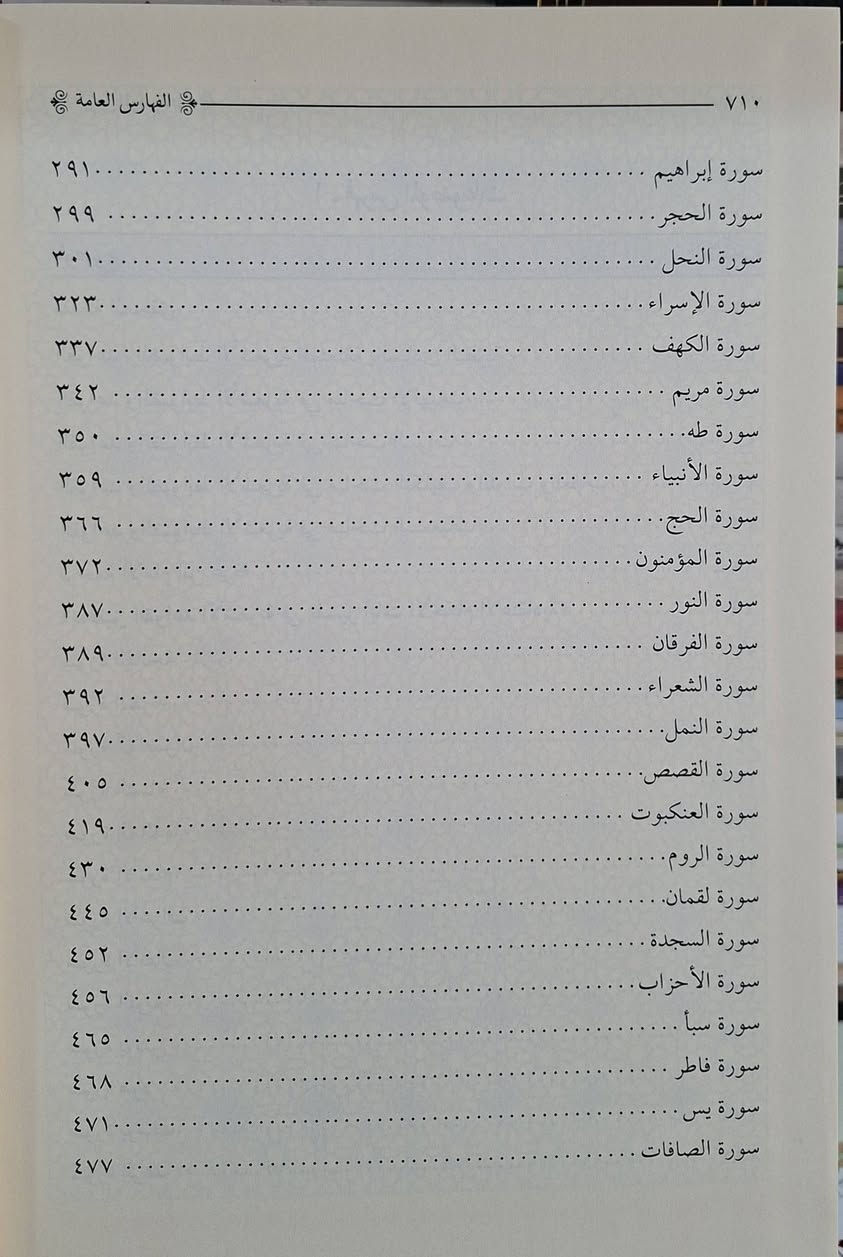 ٧١٠ الفهارس العامة
سورة إبراهيم ٢٩١
سورة الحجر ٢٩٩
سورة النحل ٣٠١
سورة الإسراء ٣٢٣
سورة الكهف ٣٣٧
سورة مريم ٣٤٢
سورة طه ٣٥٠
سورة الأنبياء ٣٥٩
سورة الحج ٣٦٦
سورة المؤمنون ٣٧٢
سورة النور ٣٨٧
سورة الفرقان ٣٨٩
سورة الشعراء ٣٩٢
سورة النمل ٣٩٧
سورة القصص ٤٠٥
سورة العنكبوت ٤١٩
سورة الروم ٤٣٠
سورة لقمان ٤٤٥
سورة السجدة ٤٥٢
سورة الأحزاب ٤٥٦
سورة سبأ ٤٦٥
سورة فاطر ٤٦٨
سورة يس ٤٧١
سورة الصافات ٤٧٧